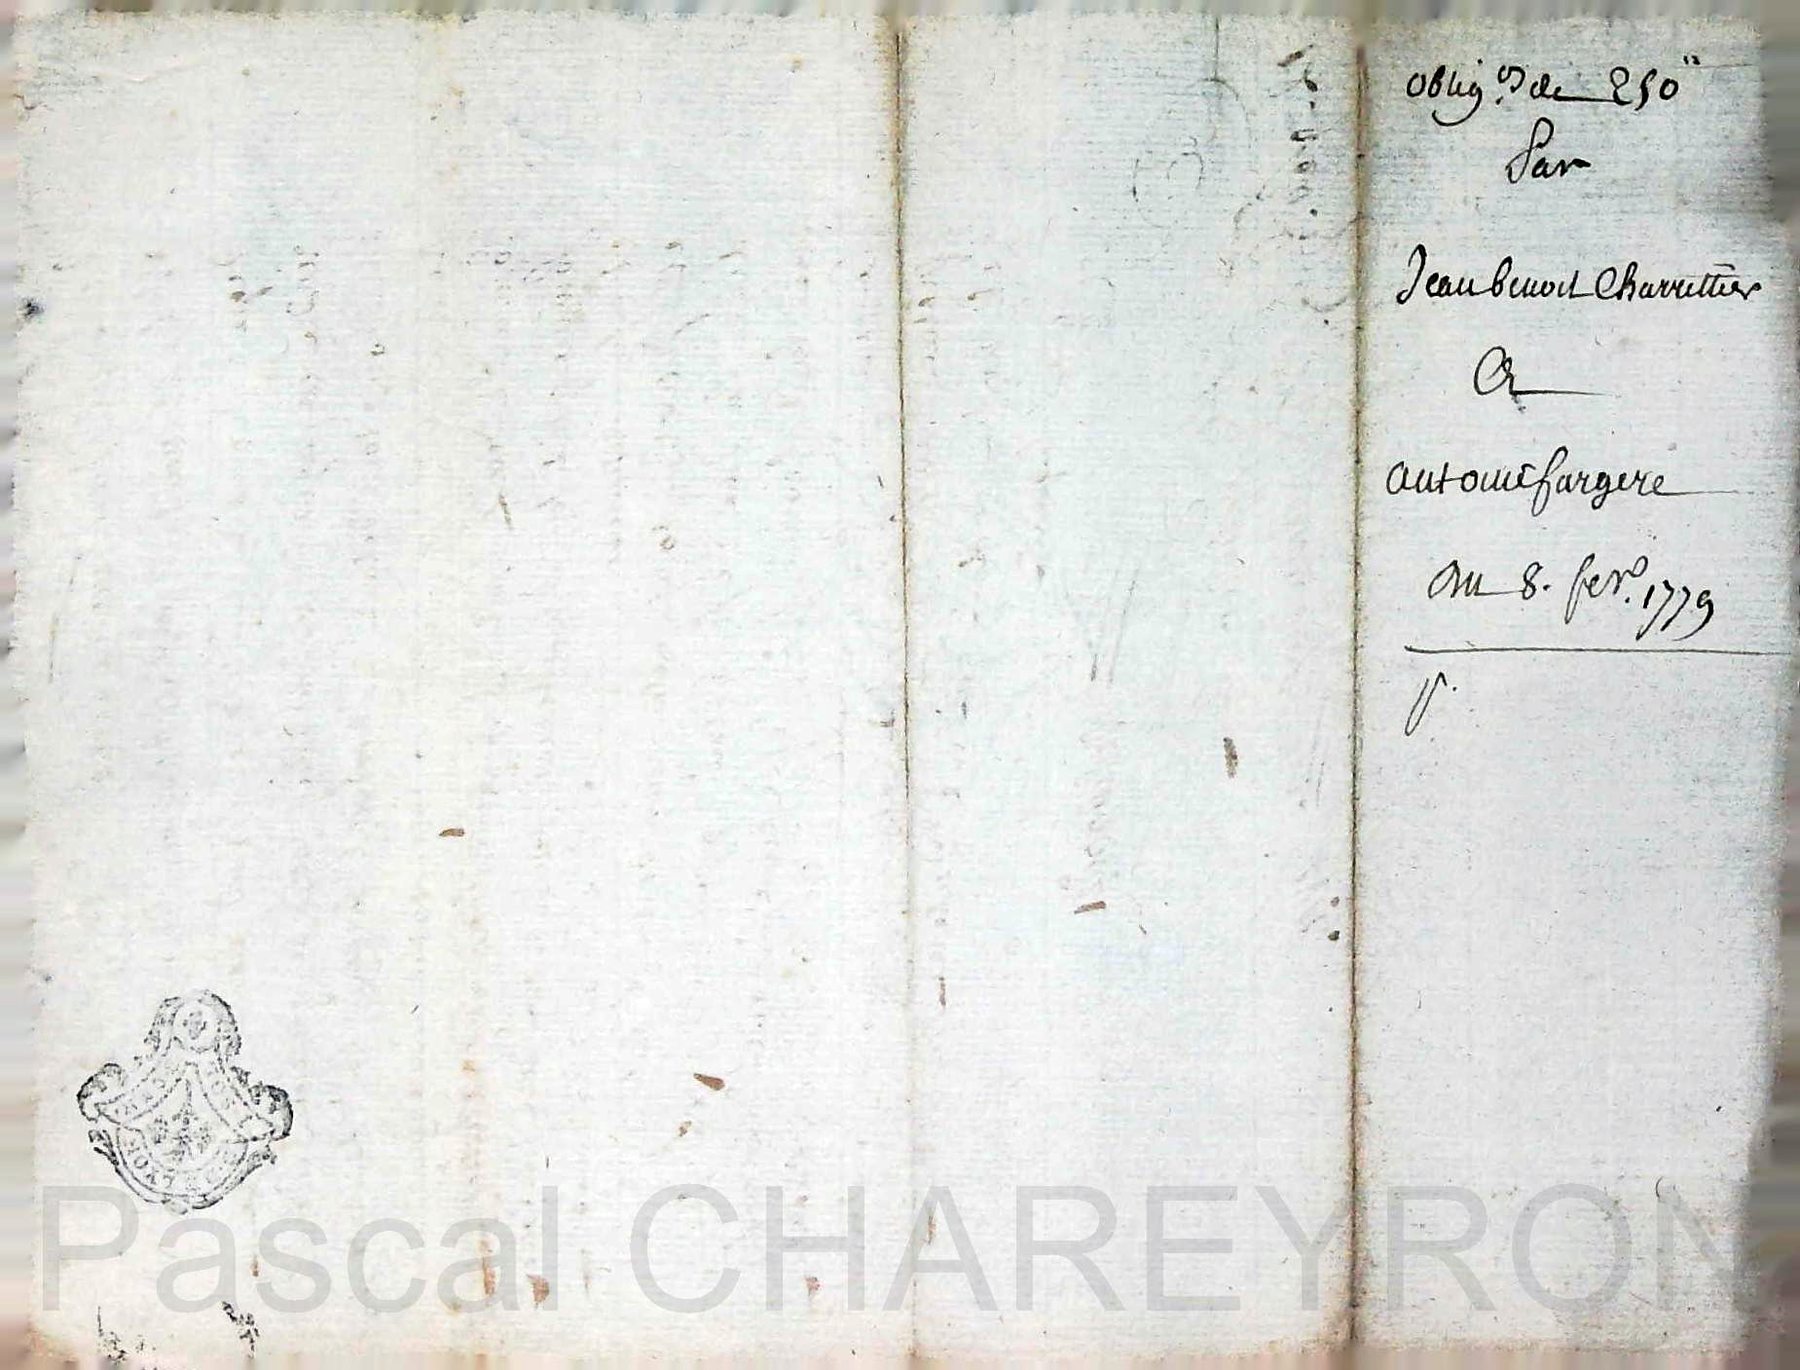 oblig.on de 250"
Par
Jean benoit Charrettier
A
antoine fargere
Du 8. fev.r 1779
Pascal CHAREYRON